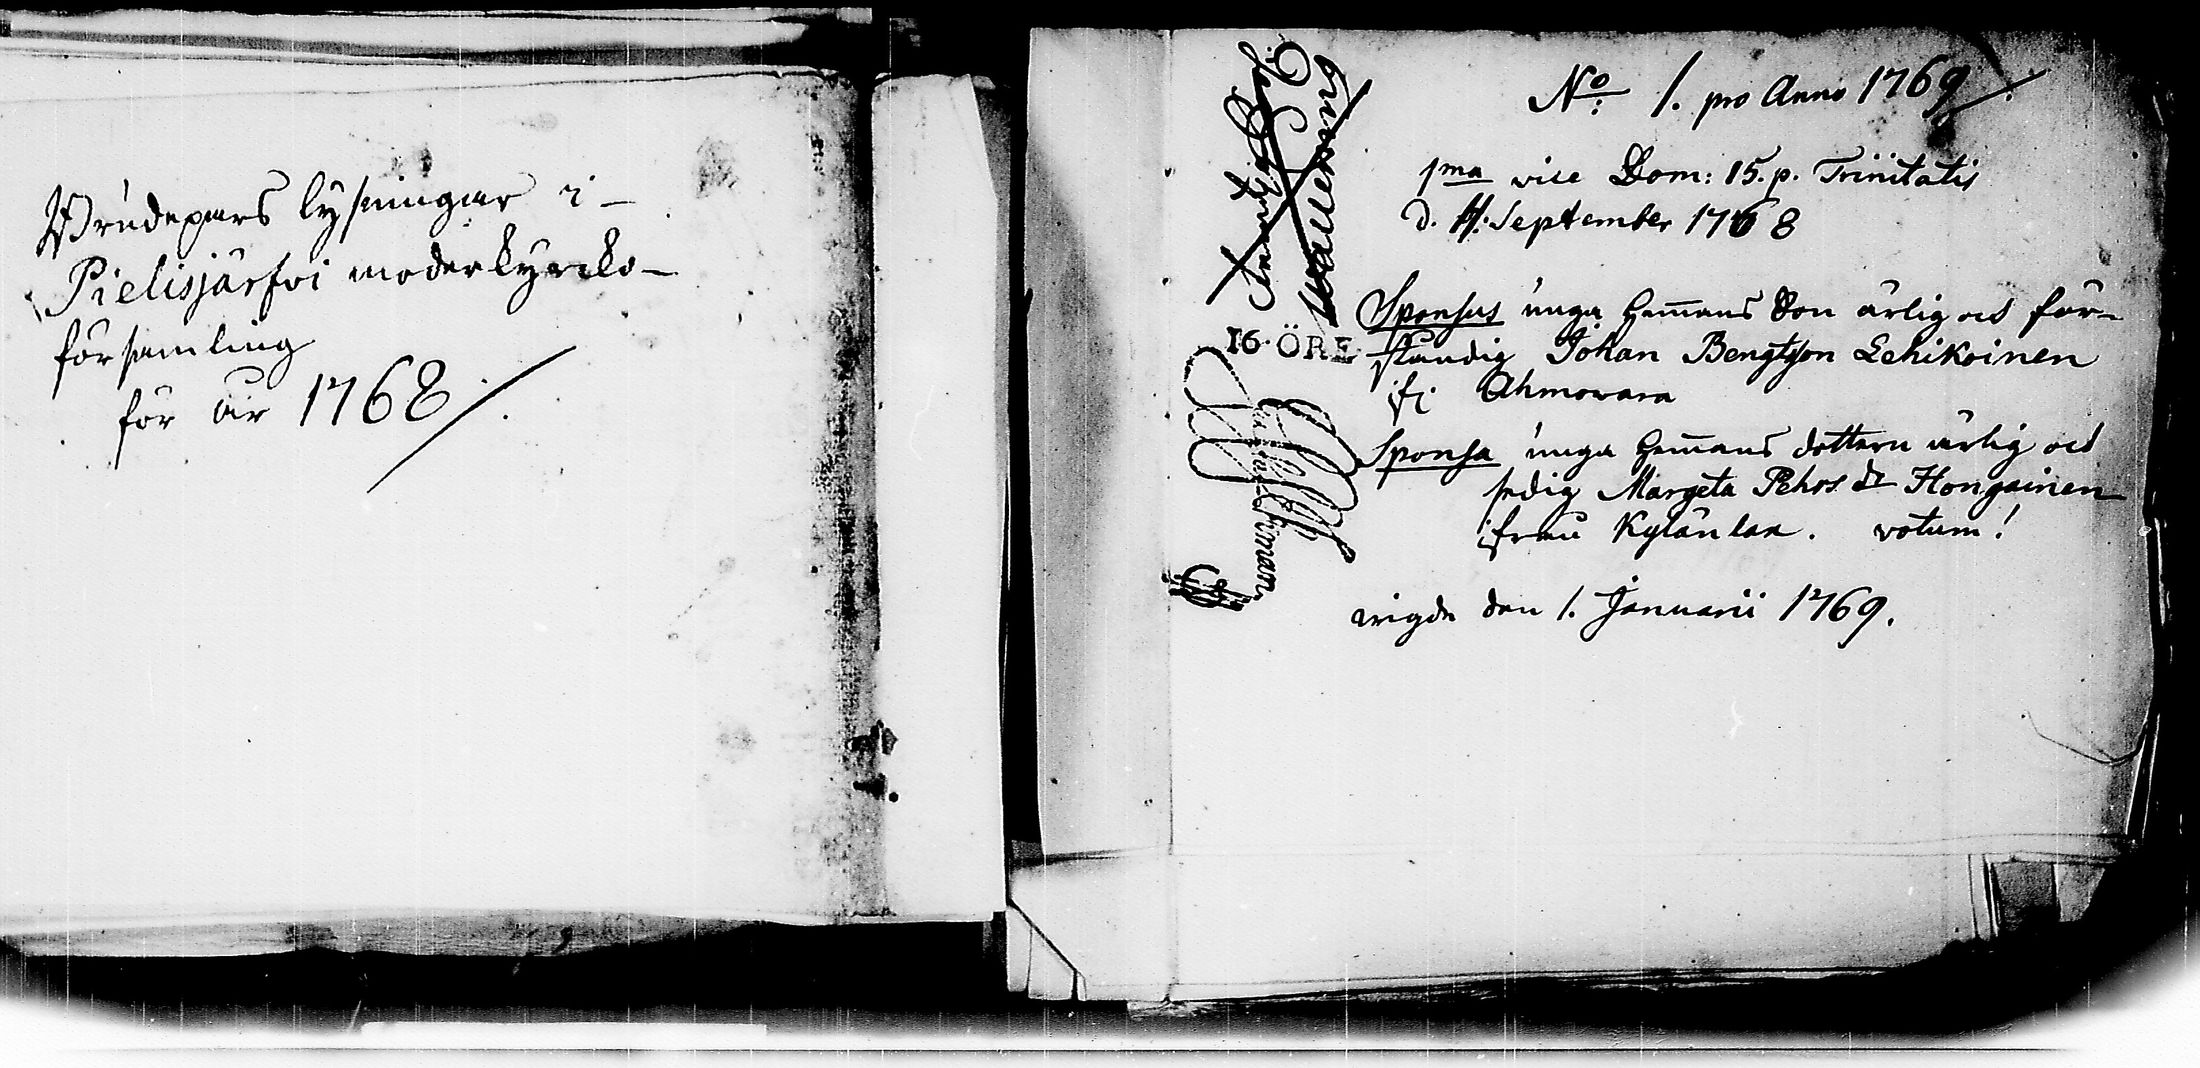 Brudepars lysningar i
Pielisjärfvi moderkyrcko-
församling
för år 1768
No: 1. pro Anno 1769
1ma vice Dom: 15. p. Trinitatis
d. 11. September 1768
Sponsus unga hemans Son ärlig och för-
ståndig Johan Bengtsson Lehikoinen
ifr Ahmowara
Sponsa unga hemans dottern ärlig och
sedig Margeta Pehrs dr Hongainen
ifrån Kylänlax. votum!
wigde den 1. Januarii 1769.
16. ÖRE